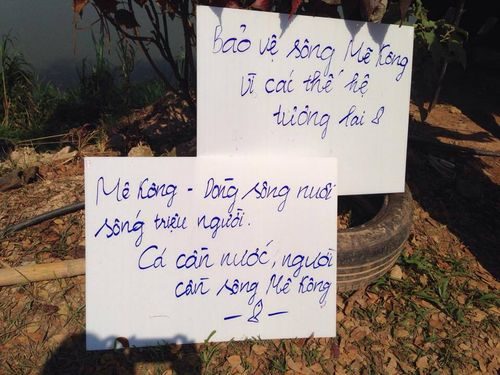 Bảo vệ sông Mê Kông
Vì các thế hệ
tương lai
Mê Kông - Dòng sông nuôi
sống triệu người.
Cá cần nước, người
cần sông Mê Kông